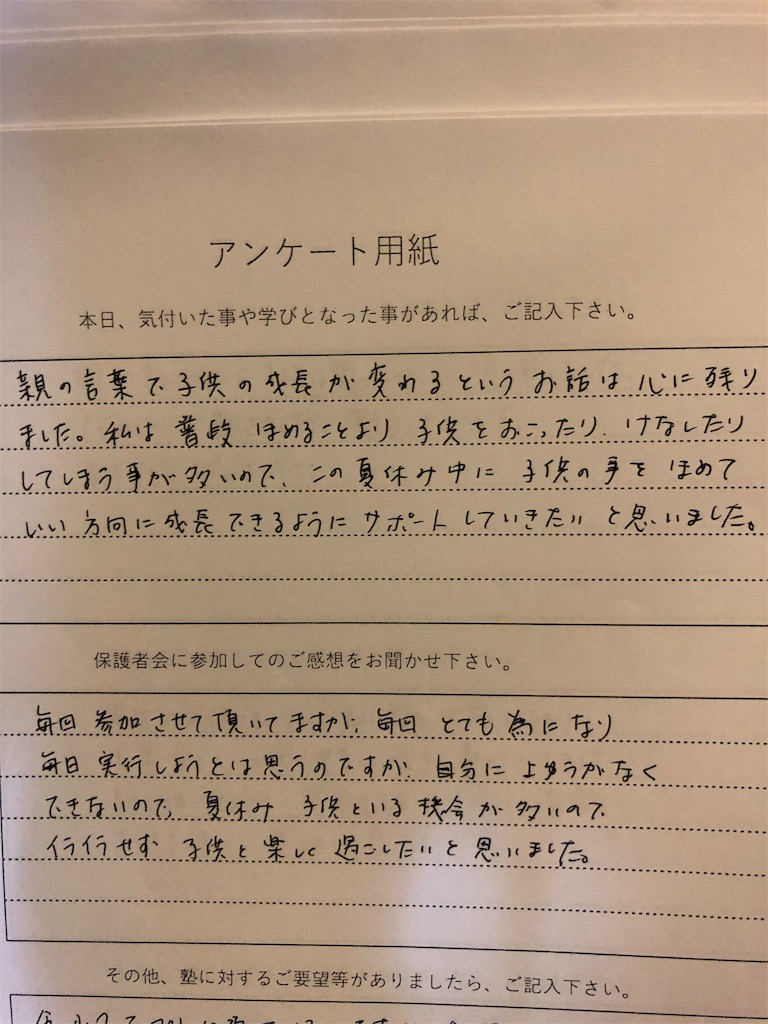 アンケート用紙
本日、気付いた事や学びとなった事があれば、ご記入下さい。
親の言葉で子供の成長が変わるというお話は心に残り
ました。私は普段ほめることより子供をおこったり、けなしたり
してしまう事が多いので、この夏休み中に子供の事をほめて
いい方向に成長できるようにサポートしていきたいと思いました。
保護者会に参加してのご感想をお聞かせ下さい。
毎回参加させて頂いてますが、毎回とても為になり
毎日実行しようとは思うのですが、自分によゆうがなく
できないので、夏休み子供といる機会が多いので
イライラせず子供と楽しく過ごしたいと思いました。
その他、塾に対するご要望等がありましたら、ご記入下さい。